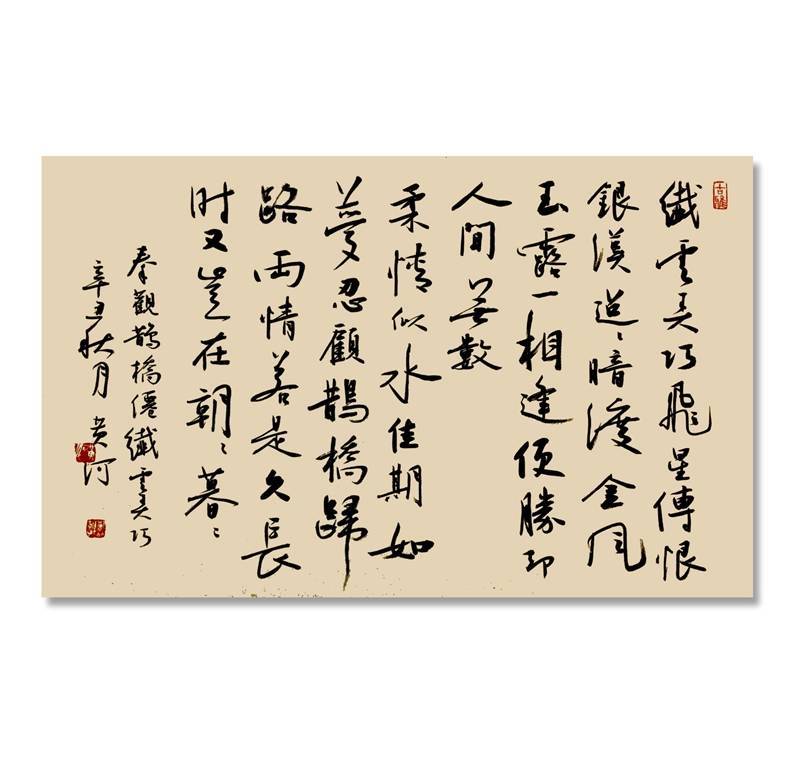 纎雲弄巧飛星傳恨
銀漢迢〻暗渡金風
玉露一相逢便勝却
人間無數
柔情似水佳期如
夢忍顧鵲橋歸
路兩情若是久長
时又豈在朝〻暮〻
秦觀鵲橋僊纎雲弄巧
辛丑秋月 黄河